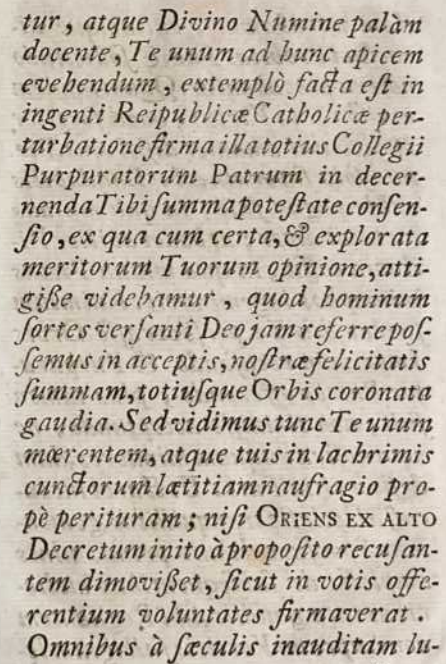 tur, atque Divino Numine palàm
docente, Te unum ad hunc apicem
evehendum, extemplò facta eſt in
ingenti Reipublicæ Catholicæ per-
turbatione firma illa totius Collegii
Purpuratorum Patrum in decer-
nenda Tibi ſumma poteſtate conſen-
ſio, ex qua cum certa, & explorata
meritorum Tuorum opinione, atti-
giſſe videbamur, quod hominum
ſortes verſanti Deo jam referre poſ-
ſemus in acceptis, noſtræ felicitatis
ſummam, totiuſque Orbis coronata
gaudia. Sed vidimus tunc Te unum
mœrentem, atque tuis in lachrimis
cunctorum lætitiam naufragio pro-
pè perituram; niſi ORIENS EX ALTO
Decretum inito à propoſito recuſan-
tem dimoviſſet, ſicut in votis offe-
rentium voluntates firmaverat.
Omnibus à ſæculis inauditam lu-